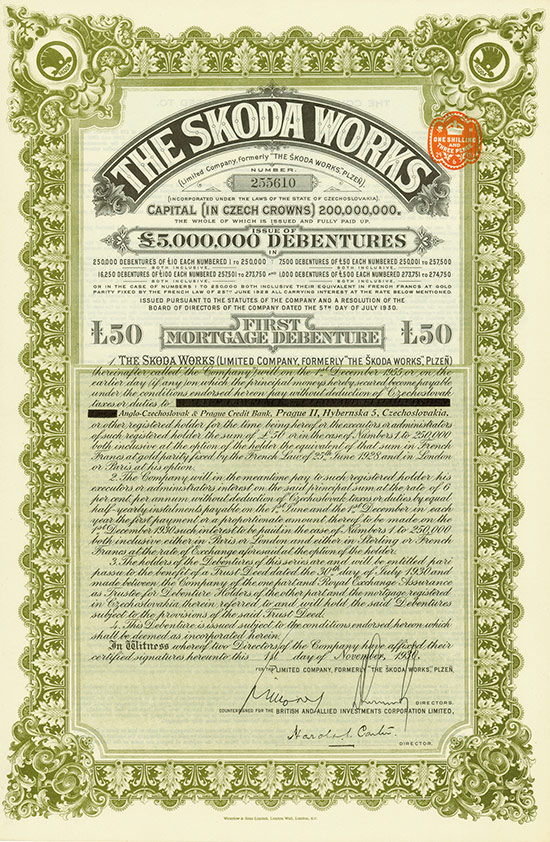 THE SKODA WORKS
(Limited Company, formerly "THE ŠKODA WORKS", PLZEŇ)
NUMBER.
255610
(INCORPORATED UNDER THE LAWS OF THE STATE OF CZECHOSLOVAKIA).
CAPITAL (IN CZECH CROWNS) 200,000,000.
THE WHOLE OF WHICH IS ISSUED AND FULLY PAID UP.
ONE SHILLING
AND
THREE PENCE
ISSUE OF
£5,000,000 DEBENTURES
IN
250,000 DEBENTURES OF £10 EACH NUMBERED 1 TO 250,000 : 7,500 DEBENTURES OF £50 EACH NUMBERED 250,001 TO 257,500
BOTH INCLUSIVE, BOTH INCLUSIVE,
16,250 DEBENTURES OF £100 EACH NUMBERED 257,501 TO 273,750 AND 1,000 DEBENTURES OF £500 EACH NUMBERED 273,751 TO 274,750
BOTH INCLUSIVE, BOTH INCLUSIVE,
OR IN THE CASE OF NUMBERS 1 TO 250,000 BOTH INCLUSIVE THEIR EQUIVALENT IN FRENCH FRANCS AT GOLD
PARITY FIXED BY THE FRENCH LAW OF 25TH JUNE 1928 ALL CARRYING INTEREST AT THE RATE BELOW MENTIONED.
ISSUED PURSUANT TO THE STATUTES OF THE COMPANY AND A RESOLUTION OF THE
BOARD OF DIRECTORS OF THE COMPANY DATED THE 5TH DAY OF JULY 1930.
£50 FIRST MORTGAGE DEBENTURE £50
1. THE SKODA WORKS (LIMITED COMPANY, FORMERLY "THE ŠKODA WORKS", PLZEŇ)
(hereinafter called the Company) will on the 1st December 1955 or on the
earlier day (if any) on which the principal moneys hereby secured become payable
under the conditions endorsed hereon pay without deduction of Czechoslovak
taxes or duties to
Anglo-Czechoslovak & Prague Credit Bank, Prague II, Hybernska 5, Czechoslovakia,
or other registered holder for the time being hereof or the executors or administrators
of such registered holder the sum of £50 or in the case of Numbers 1 to 250,000
both inclusive at the option of the holder the equivalent of that sum in French
Francs at gold parity fixed by the French Law of 25th June 1928 and in London
or Paris at his option.
2. The Company will in the meantime pay to such registered holder his
executors or administrators interest on the said principal sum at the rate of 6
per cent. per annum without deduction of Czechoslovak taxes or duties by equal
half-yearly instalments payable on the 1st June and the 1st December in each
year the first payment or a proportionate amount thereof to be made on the
1st December 1930 such interest to be paid in the case of Numbers 1 to 250,000
both inclusive either in Paris or London and either in Sterling or French
Francs at the rate of Exchange aforesaid at the option of the holder.
3. The holders of the Debentures of this series are and will be entitled pari
passu to the benefit of a Trust Deed dated the 30th day of July 1930 and
made between the Company of the one part and Royal Exchange Assurance
as Trustee for Debenture Holders of the other part and the mortgage registered
in Czechoslovakia therein referred to and will hold the said Debentures
subject to the provisions of the said Trust Deed.
4. This Debenture is issued subject to the conditions endorsed hereon which
shall be deemed as incorporated herein.
In Witness whereof two Directors of the Company have affixed their
certified signatures hereunto this 1st day of November, 1930.
FOR THE LIMITED COMPANY, FORMERLY "THE ŠKODA WORKS", PLZEŇ,
DIRECTORS.
COUNTERSIGNED FOR THE BRITISH AND ALLIED INVESTMENTS CORPORATION LIMITED,
Harold S. Carter
DIRECTOR.
Waterlow & Sons Limited, London Wall, London, E.C.